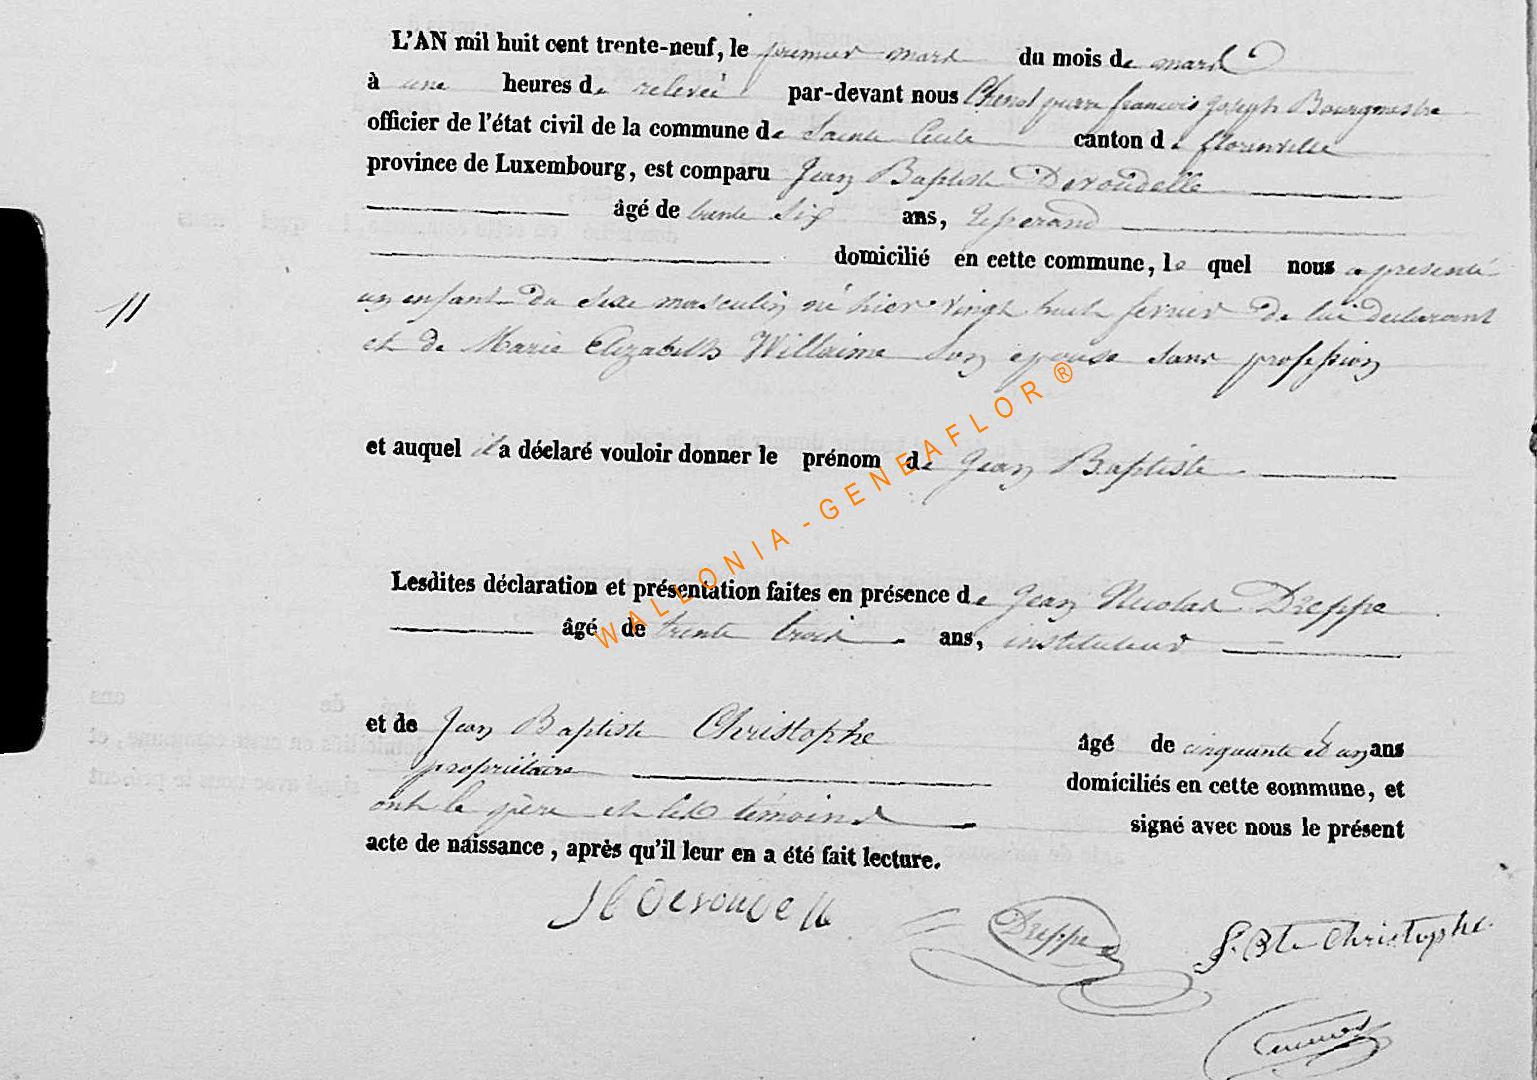 L'AN mil huit cent trente-neuf, le premier mars du mois de mars
à une heures de relevée par-devant nous pierre françois Joseph Bourgmestre
officier de l'état civil de la commune de Sainte Cecile canton de florenville
province de Luxembourg, est comparu Jean Baptiste Devoudelle
âgé de trente six ans,
domicilié en cette commune, le quel nous a présenté
11
un enfant du sexe masculin né hier vingt huit fevrier de lui declarant
et de Marie Elizabeth Willaime son epouse sans profession
et auquel il a déclaré vouloir donner le prénom de Jean Baptiste
Lesdites déclaration et présentation faites en présence de Jean Nicolas Dreppe
âgé de trente trois ans, instituteur
et de Jean Baptiste Christophe âgé de cinquante et un ans
propriétaire domiciliés en cette commune, et
ont le père et les témoins signé avec nous le présent
acte de naissance, après qu'il leur en a été fait lecture.
Dreppe
J. Bte Christophe
WALLONIA - GENEAFLOR ®